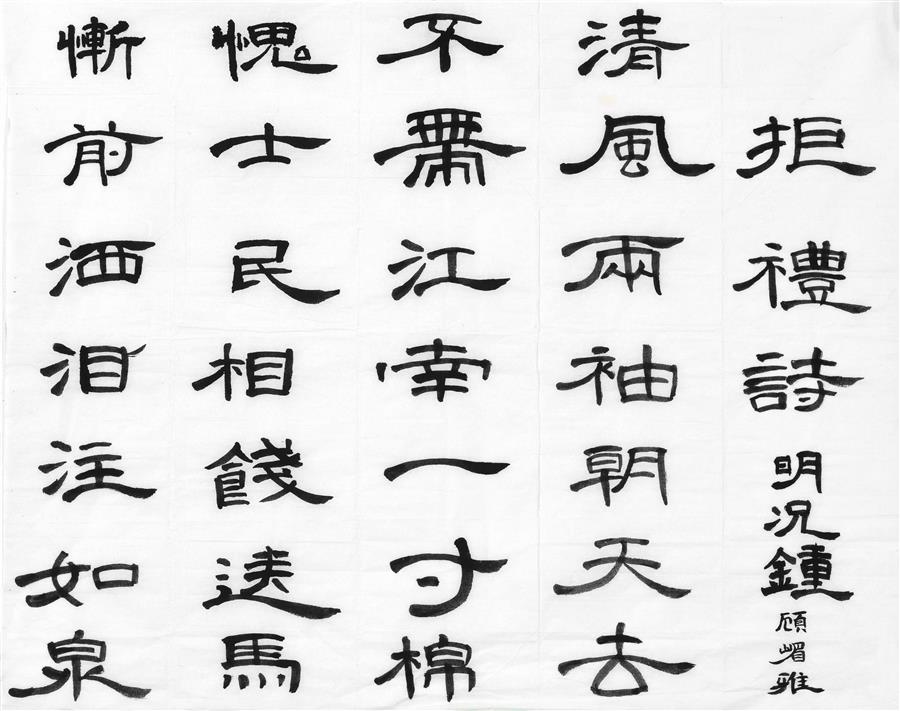 拒禮詩 明况鍾 顧嵋雅
清風兩袖朝天去
不帶江南一寸棉
愧士民相餞送馬
慚前洒泪注如泉